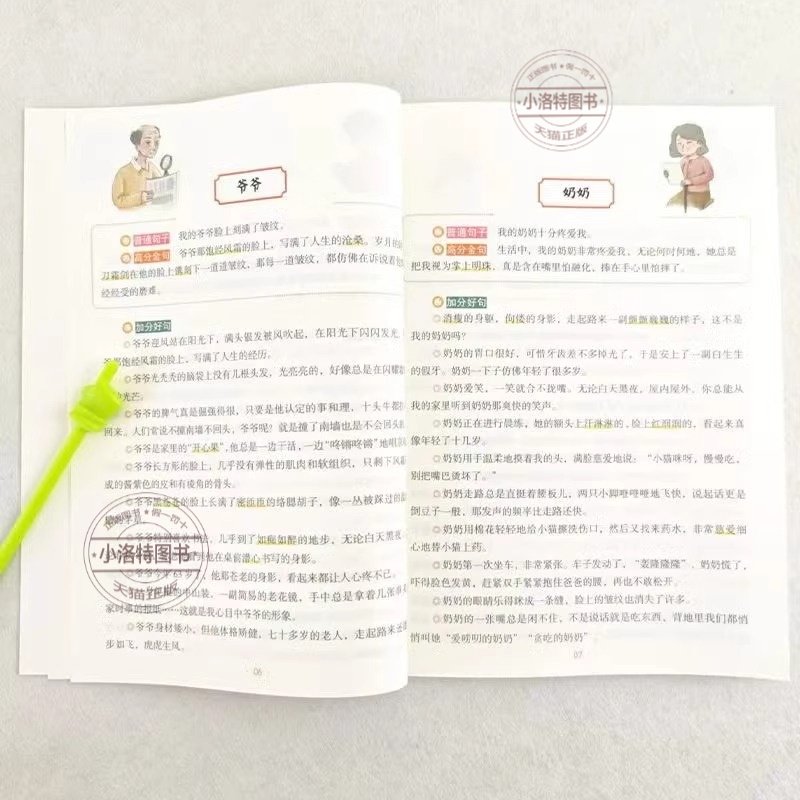 正版图书★假一罚十
小洛特图书
天猫正版
爷爷
普通句子 我的爷爷脸上刻满了皱纹。
高分金句 爷爷那饱经风霜的脸上，写满了人生的沧桑。岁月的
刀霜剑在他的脸上镌刻下一道道皱纹，那每一道皱纹，都仿佛在诉说着他
经经受的磨难。
加分好句
◎爷爷迎风站在阳光下，满头银发被风吹起，在阳光下闪闪发光，
爷那饱经风霜的脸上，写满了人生的经历。
◎爷爷光秃秃的脑袋上没有几根头发，光亮亮的，好像总是在闪耀
光芒。
◎爷爷的脾气真是倔强得很，只要是他认定的事和理，十头牛都拉
回来。人们常说不撞南墙不回头，爷爷呢？就是撞了南墙也是不会回头的
◎爷爷是家里的“开心果”，他总是一边干活，一边“咚锵咚锵”地唱
◎爷爷长方形的脸上，几乎没有弹性的肌肉和软组织，只剩下风
成的酱紫色的皮和有棱角的骨头。
◎爷爷黑苍苍的脸上长满了密匝匝的络腮胡子，像一丛被踩过的
的草。
◎爷爷特别喜欢书法，几乎到了如痴如醉的地步，无论白天黑夜
看到他在桌前潜心书写的身影。
岁了，他那苍老的身影，看起来都让人心疼不已。
的中山装，一副简易的老花镜，手中总是拿着几张
家时事的报纸……这就是我心目中爷爷的形象。
◎爷爷身材矮小，但他体格矫健，七十多岁的老人，走起路来还
步如飞，虎虎生风。
正版图书★假一罚十
小洛特图书
天猫正版
06
奶奶
普通句子 我的奶奶十分疼爱我。
高分金句 生活中，我的奶奶非常疼爱我，无论何时何地，她总是
把我视为掌上明珠，真是含在嘴里怕融化，捧在手心里怕摔了。
加分好句
◎消瘦的身躯，佝偻的身影，走起路来一副颤颤巍巍的样子，这不是
我的奶奶吗？
◎奶奶的胃口很好，可惜牙齿差不多掉光了，于是安上了一副白生生
的假牙。奶奶一下子仿佛年轻了很多岁。
◎奶奶爱笑，一笑就合不拢嘴。无论白天黑夜，屋内屋外，你总能从
我的家里听到奶奶那爽快的笑声。
◎奶奶正在进行晨练，她的额头上汗淋淋的，脸上红润润的，看起来真
像年轻了十几岁。
◎奶奶用手温柔地摸着我的头，满脸慈爱地说：“小猫咪呀，慢慢吃，
别把嘴巴烫坏了。”
◎奶奶走路总是直挺着腰板儿，两只小脚噔噔噔地飞快，说起话更是
倒豆子一般，那发声的频率比走路还快。
◎奶奶用棉花轻轻地给小猫擦洗伤口，然后又找来药水，非常慈爱细
心地替小猫上药。
◎奶奶第一次坐车，非常紧张。车子发动了，“轰隆隆隆”，奶奶慌了，
吓得脸色发黄，赶紧双手紧紧抱住爸爸的腰，再也不敢松开。
◎奶奶的眼睛乐得眯成一条缝，脸上的皱纹也消失了许多。
◎奶奶的一张嘴总是闲不住，不是说话就是吃东西，背地里我们都悄
悄叫她“爱唠叨的奶奶”“贪吃的奶奶”
07